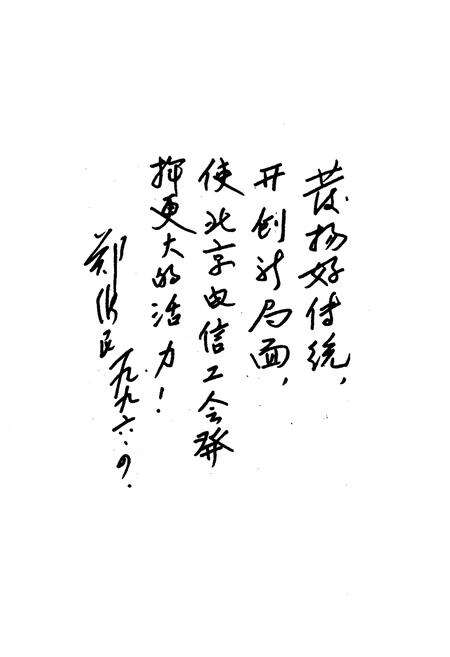 发扬好传统，
开创新局面，
使北京电信工会發
挥更大的活力！
郑 民 一九九六.